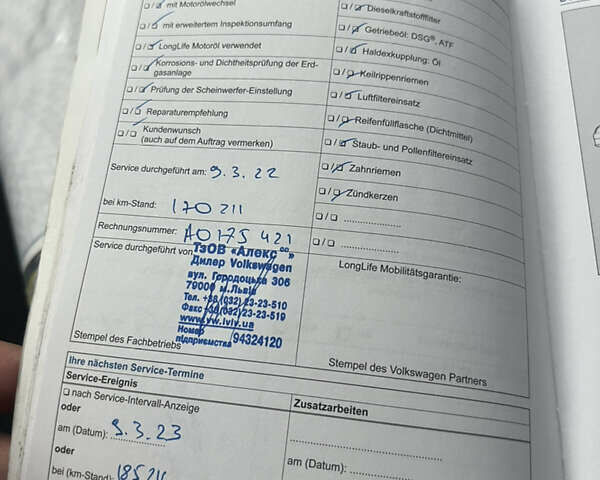 ❑ / ❑ mit Motorölwechsel
❑ / ❑ mit erweitertem Inspektionsumfang
❑ / ❑ LongLife Motoröl verwendet
❑ / ❑ Korrosions- und Dichtheitsprüfung der Erd-
gasanlage
❑ / ❑ Prüfung der Scheinwerfer-Einstellung
❑ / ❑ Reparaturempfehlung
❑ / ❑ Kundenwunsch
(auch auf dem Auftrag vermerken)
Service durchgeführt am: 9.3.22
bei km-Stand: 170 211
Rechnungsnummer: A0175 421
Service durchgeführt von
ТзОВ «Алекс °°»
Дилер Volkswagen
вул. Городоцька 306
79000 м.Львів
Тел. +38(032) 23-23-510
Факс +38(032) 23-23-519
www.vw.lviv.ua
Номер
підприємства 94324120
Stempel des Fachbetriebs
❑ / ❑ Dieselkraftstofffilter
❑ / ❑ Getriebeöl: DSG®, ATF
❑ / ❑ Haldexkupplung: Öl
❑ / ❑ Keilrippenriemen
❑ / ❑ Luftfiltereinsatz
❑ / ❑ Reifenfüllflasche (Dichtmittel)
❑ / ❑ Staub- und Pollenfiltereinsatz
❑ / ❑ Zahnriemen
❑ / ❑ Zündkerzen
❑ / ❑ ....................
❑ / ❑ ....................
LongLife Mobilitätsgarantie:
Stempel des Volkswagen Partners
Ihre nächsten Service-Termine
Service-Ereignis
❑ nach Service-Intervall-Anzeige
oder
am (Datum): 9.3.23
oder
bei (km-Stand):
Zusatzarbeiten
am (Datum):